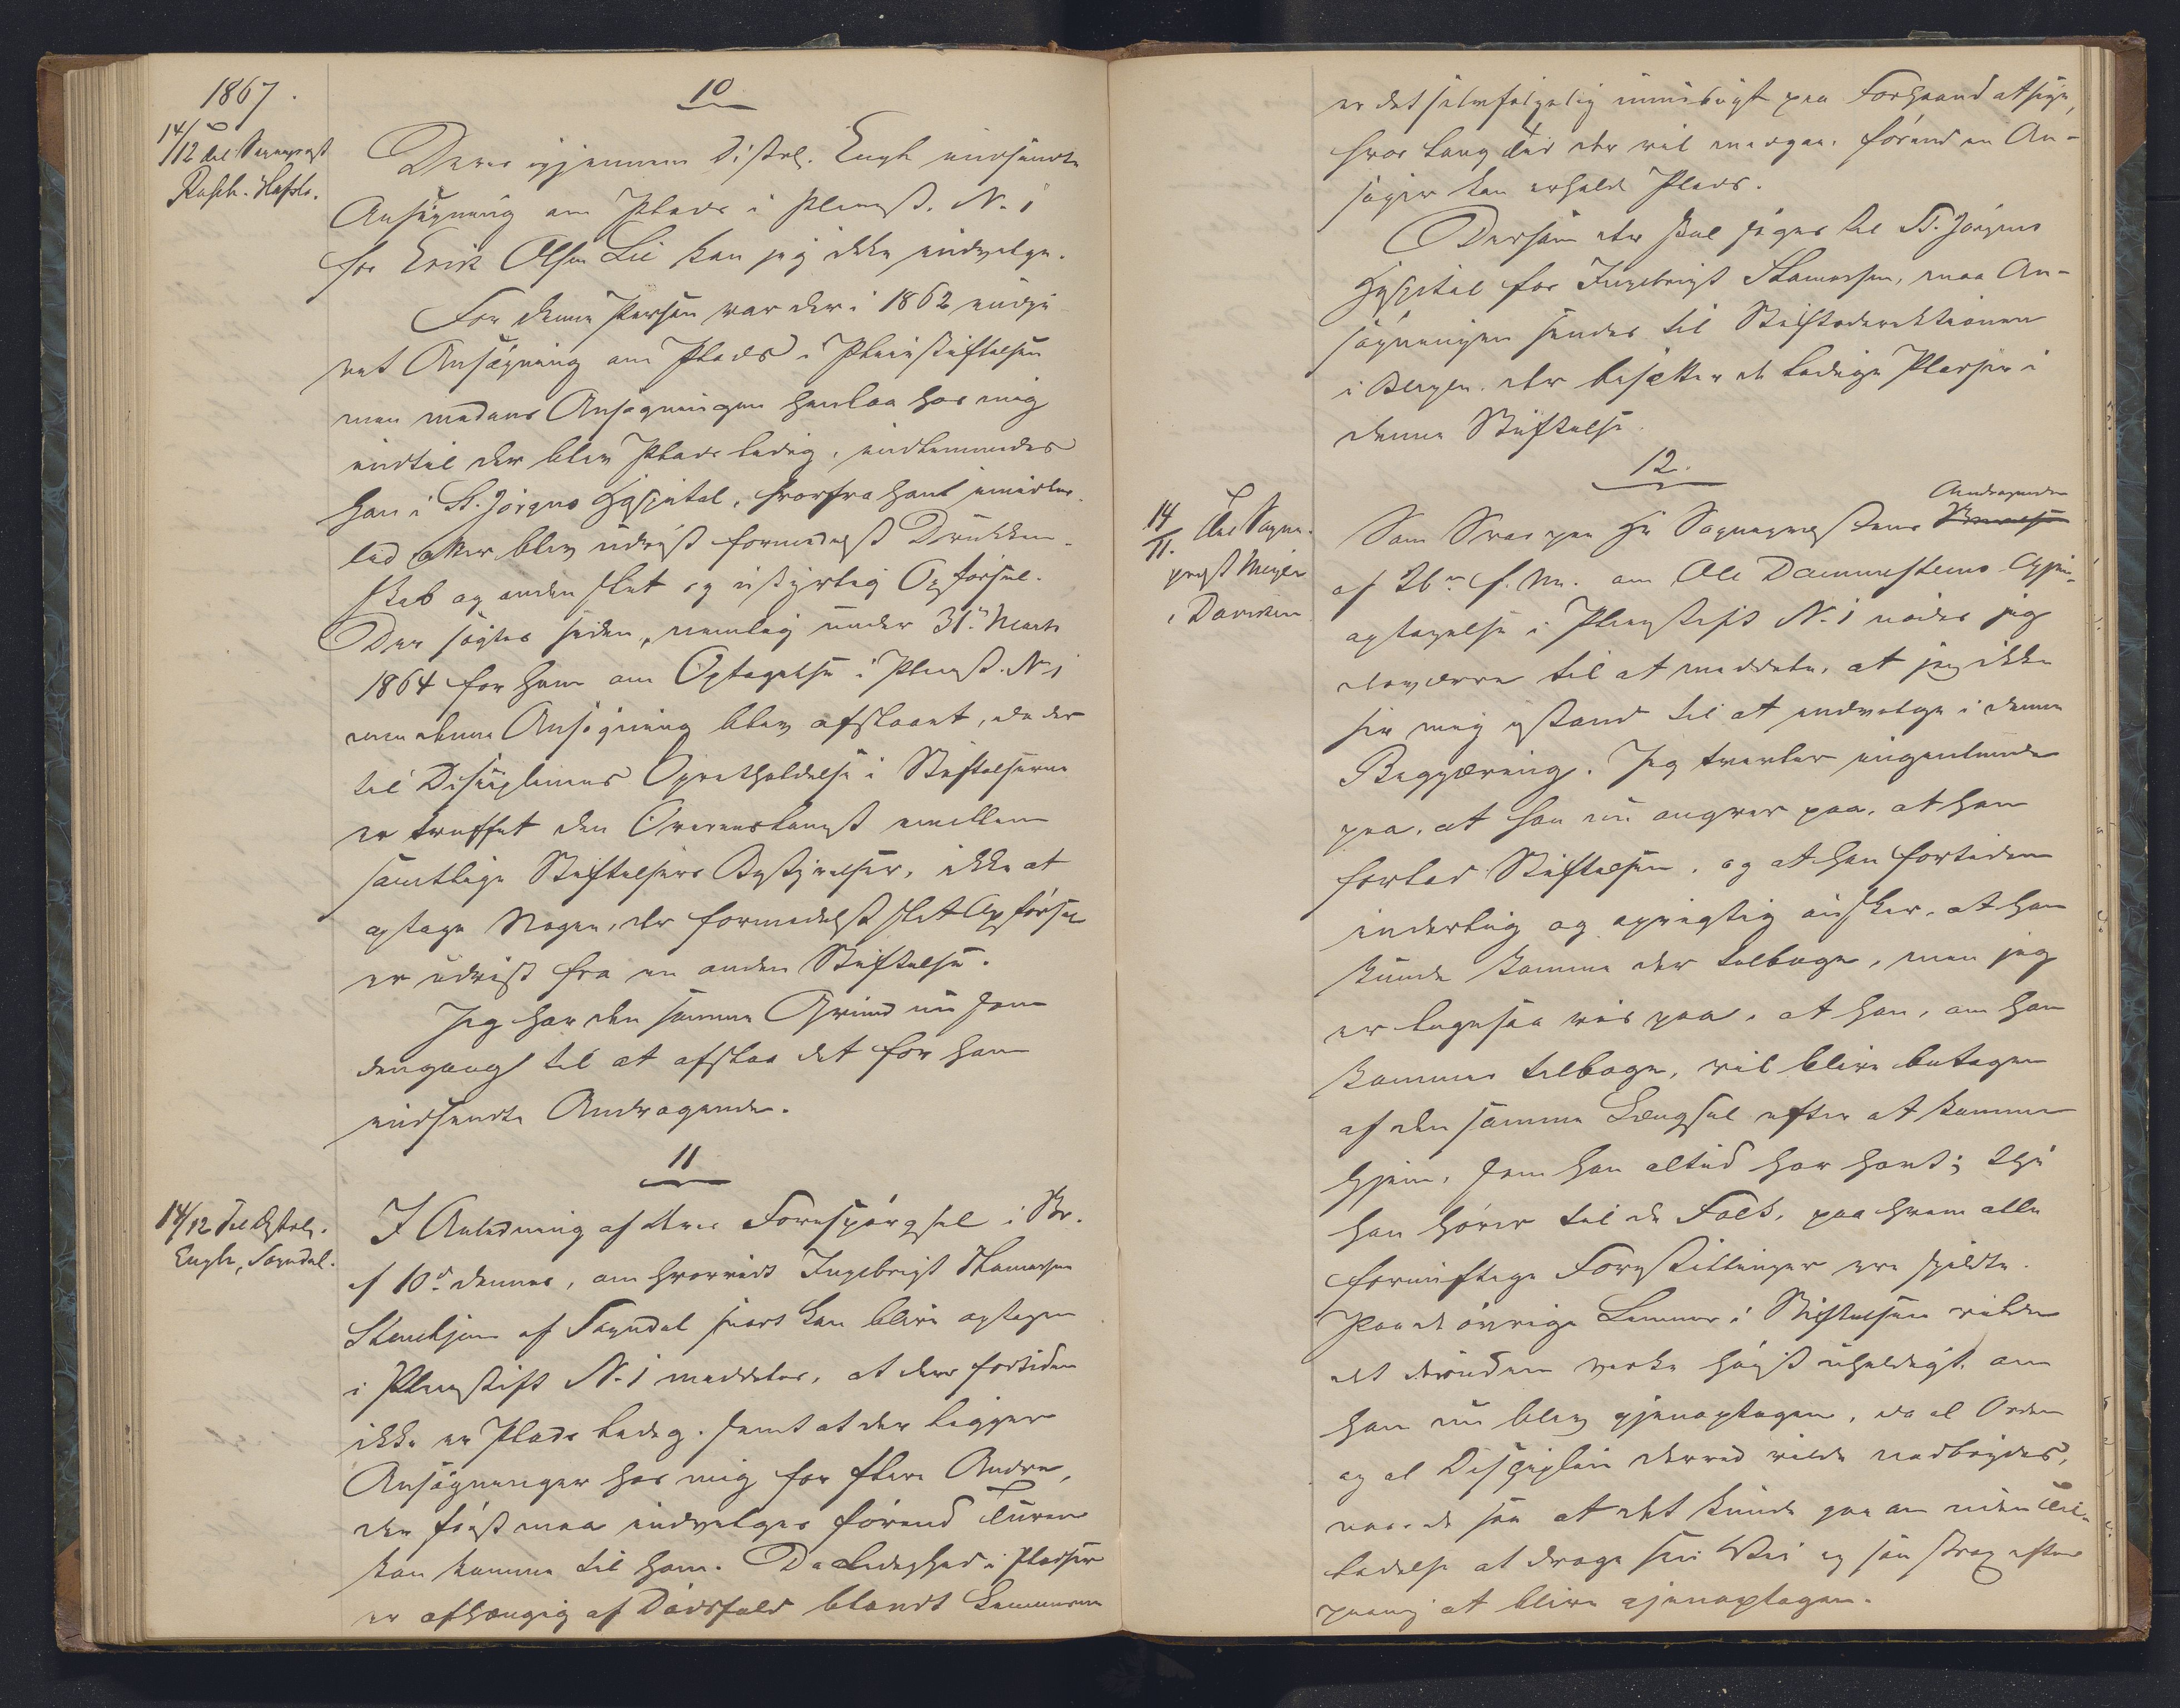 1867.
10
14/12 til Sognepræst
Rasch. Hafslo.
Deres igjennem Distrl. Engh indsendte
Ansøgning om Plads i Pleiest. N. 1
for Erik Olsen Lie kan jeg ikke indvilge.
For denne Person var der i 1862 indgi
vet Ansøgning om Plads i Pleiestiftelsen
men medens Ansøgningen henlaa hos mig
indtil der blev Plads ledig, indkom
han i St. Jørgens Hospital, hvorfra han imidler-
tid atter blev udvist formedelst Drukken-
skab og anden slet og ustyrlig Opførsel.
Der søgtes siden, nemlig under 31te Marts
1864 for ham om Optagelse i Pleiest. N. 1
men denne Ansøgning blev afslaaet, da der
til Disciplinens Opretholdelse i Stiftelserne
er truffet den Overenskomst mellem
samtlige Stiftelsers Bestyrelser, ikke at
optage Nogen, der formedelst slet Opførsel
er udvist fra en anden Stiftelse.
Jeg har den samme Grund nu som
dengang til at afslaa det for ham
indsendte Andragende.
11
14/12 Til Distrl.
Engh, Sogndal.
I Anledning af Deres Forespørgsel i Br.
af 10de dennes, om hvorvidt Ingebrigt
af Sogndal snart kan blive optagen
i Pleiestift N. 1 meddeles, at der fortiden
ikke er Plads ledig. samt at der ligger
Ansøgninger hos mig for flere Andre,
der først maa indvilges førend Turen
kan komme til ham. Da Ledighed i Pladser
er afhængig af Dødsfald blandt Lemmerne
er det selvfølgelig umuligt paa Forhaand at sige,
hvor lang Tid der vil medgaa. førend en An-
søger kan erholde Plads.
Dersom der skal søges til St. Jørgens
Hospital for Ingebrigt, maa An-
søgningen sendes til Stiftsdirektionen
i Bergen. der besætter de ledige Pladser i
denne Stiftelse.
12.
14/11. Til Sogne-
præst Meyer
i Daviken
Som Svar paa Hr Sognepræstens Andragende
af 26de f. M. om Ole Dammestens Gjen-
optagelse i Pleiestift N. 1 nødes jeg
desværre til at meddele, at jeg ikke
ser mig istand til at indvilge i denne
Begjæring. Jeg tvivler ingenlunde
paa, at han nu angrer paa, at han
forlod Stiftelsen, og at han fortiden
inderlig og oprigtig ønsker, at han
kunde komme der tilbage, men jeg
er ligesaa vis paa, at han, om han
kommer tilbage, vil blive betagen
af den samme Længsel efter at komme
hjem, som han altid har havt; thi
han hører til de Folk, paa hvem alle
fornuftige Forestillinger ere spildte.
Paa de øvrige Lemmer i Stiftelsen vilde
det desuden virke høist uheldigt. om
han nu blev gjenoptagen, da al Orden
og al Disciplin derved vilde nedbrydes,
naar de saa at det kunde gaa an uden Til-
ladelse at drage sin Vei og saa strax efter
paany at blive gjenoptagen.